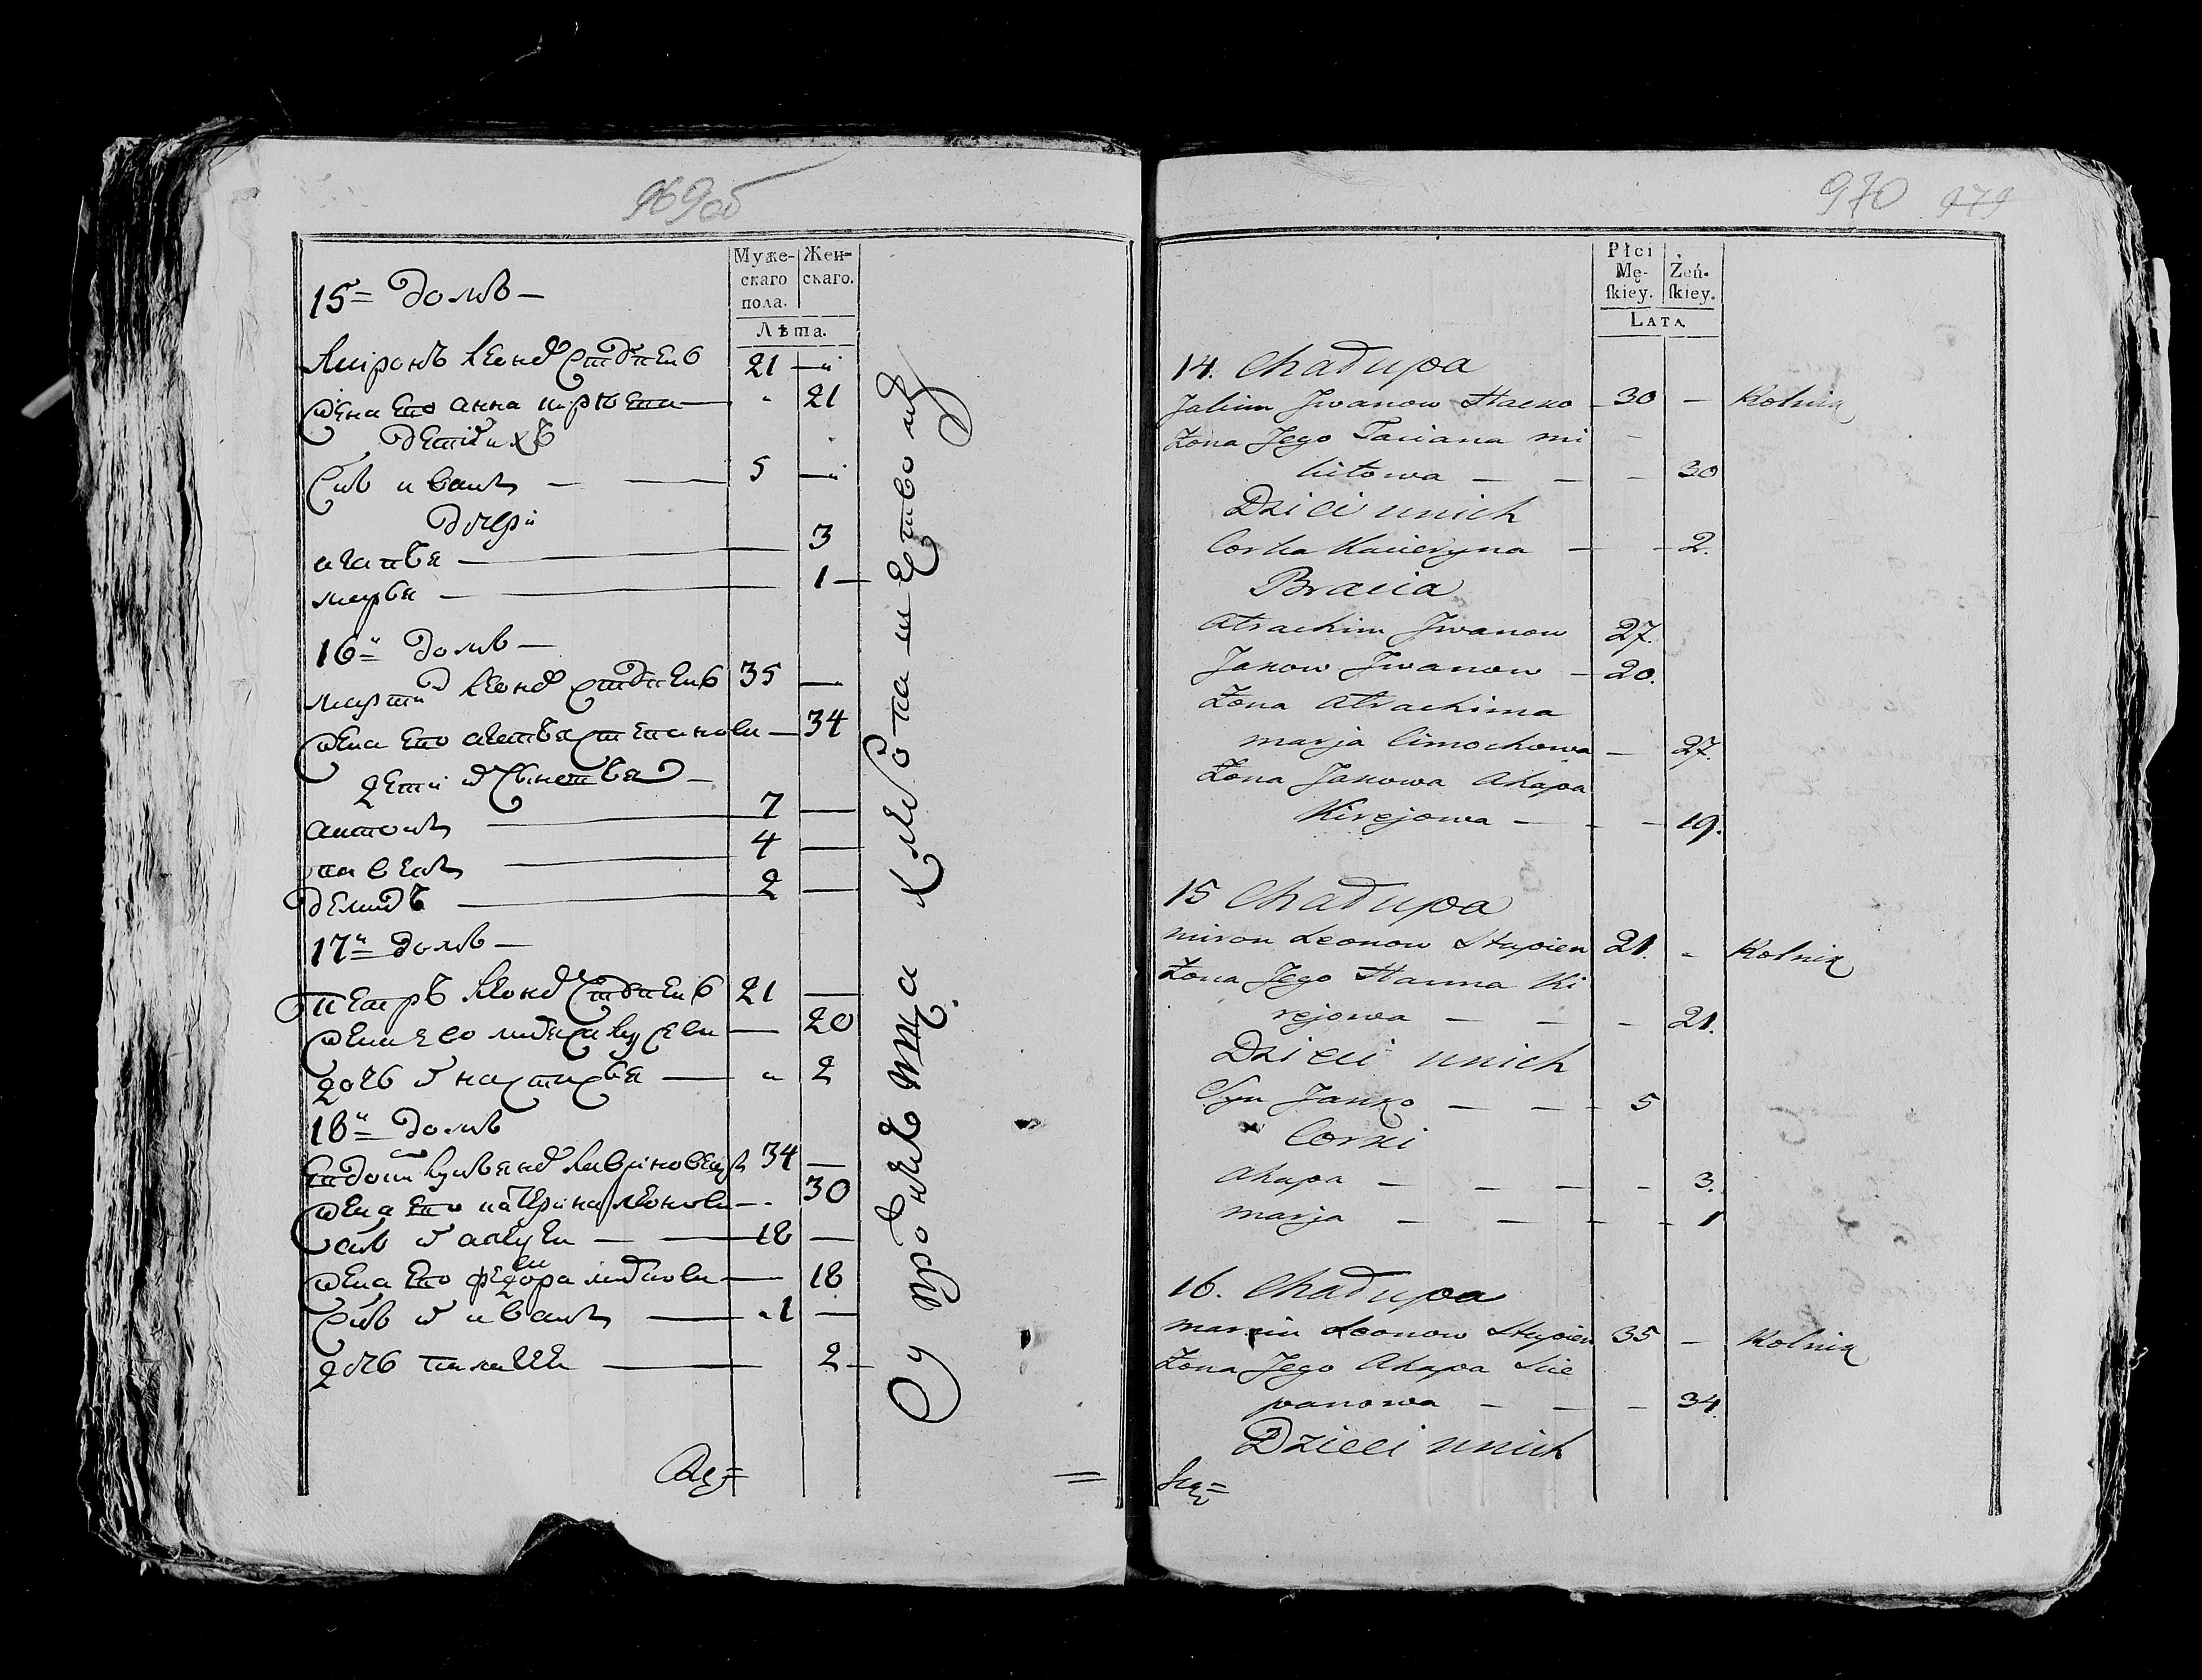 969об
Муже-
скаго
пола.
Жен-
скаго.
Лѣта.
15= домъ —
Миронъ Леоно Ступень 21 —
жена его анна кирѣева — 21
дети ихъ
Сынъ иванъ — — 5 —
дочери
агапья — 3
марья — 1 —
16й домъ —
мартин Леоно ступень 35 —
жена его агапья степанова — 34
дети
антонъ — 7 —
павелъ — 4 —
демидъ — 2 —
17й домъ —
петръ Леоно Ступень 21 —
жена его — 20
дочь настасья — 2
18й домъ
34 —
жена его катерина леонова — 30
сынъ алексеи — — 18 —
жена его федора — 18
Сынъ иванъ — 1 —
дочь палагея — 2 —
970 979
Płci
Mę-
ſkiey.
Żeń-
ſkiey.
Lata
14. Chałupa
Jakim Jwanow Hacko 30 — Rolnik
Żona Jego Taciana mi —
kitowa — — — 30
Dzieci unich
Corka Kacieryna — — 2.
Bracia
Atrachim Jwanow 27.
Jakow Jwanow — 20.
Żona Atrachima
marja Cimochowa — 27.
Żona Jakowa Ahapa
Kirejowa — — — 19.
15 Chałupa
miron Leonow Stupien 21. — Rolnik
Żona Jego Hanna Ki
rejowa — — — 21.
Dzieci unich
Syn Janko — — — 5
Corki
Ahapa — — — — 3.
marja — — — — 1
16. Chałupa
marcin Leonow Stupien 35 — Rolnik
Żona Jego Ahapa Scie
panowa — — — 34.
Dzieci unich